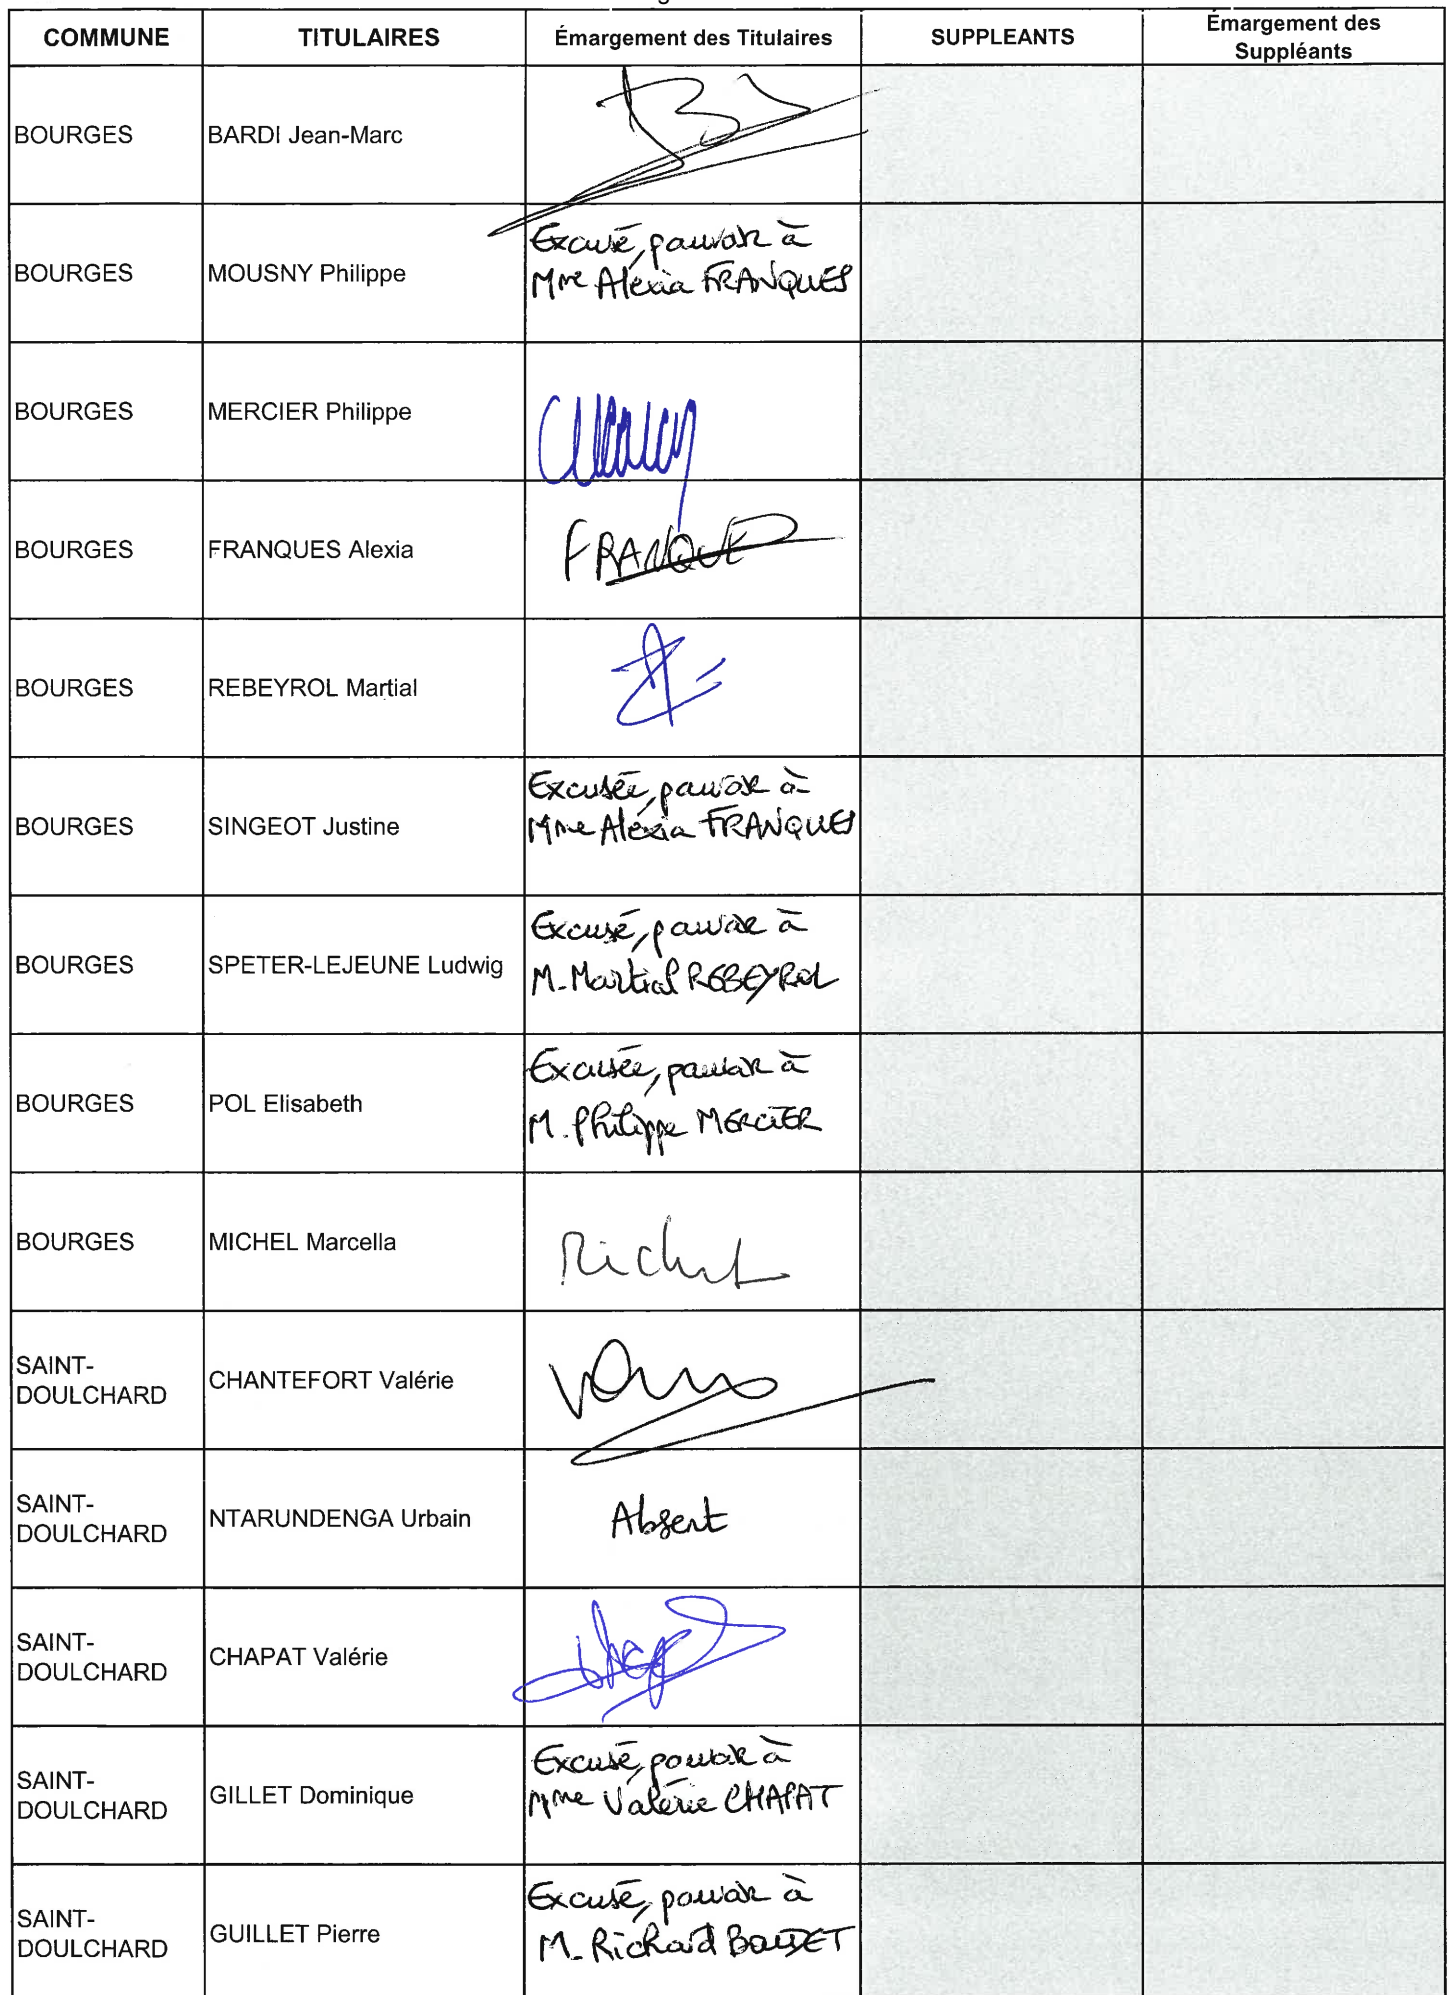 COMMUNE TITULAIRES Émargement des Titulaires SUPPLEANTS Émargement des
Suppléants
BOURGES BARDI Jean-Marc
BOURGES MOUSNY Philippe Excusé, pouvoir à
Mme Aléxia FRANQUES
BOURGES MERCIER Philippe
BOURGES FRANQUES Alexia FRANQUES
BOURGES REBEYROL Martial
BOURGES SINGEOT Justine Excusée, pouvoir à
Mme Aléxia FRANQUES
BOURGES SPETER-LEJEUNE Ludwig Excusé, pouvoir à
M. Martial REBEYROL
BOURGES POL Elisabeth Excusée, pouvoir à
M. Philippe MERCIER
BOURGES MICHEL Marcella Michel
SAINT-
DOULCHARD CHANTEFORT Valérie
SAINT-
DOULCHARD NTARUNDENGA Urbain Absent
SAINT-
DOULCHARD CHAPAT Valérie
SAINT-
DOULCHARD GILLET Dominique Excusé, pouvoir à
Mme Valérie CHAPAT
SAINT-
DOULCHARD GUILLET Pierre Excusé, pouvoir à
M. Richard BOUDET